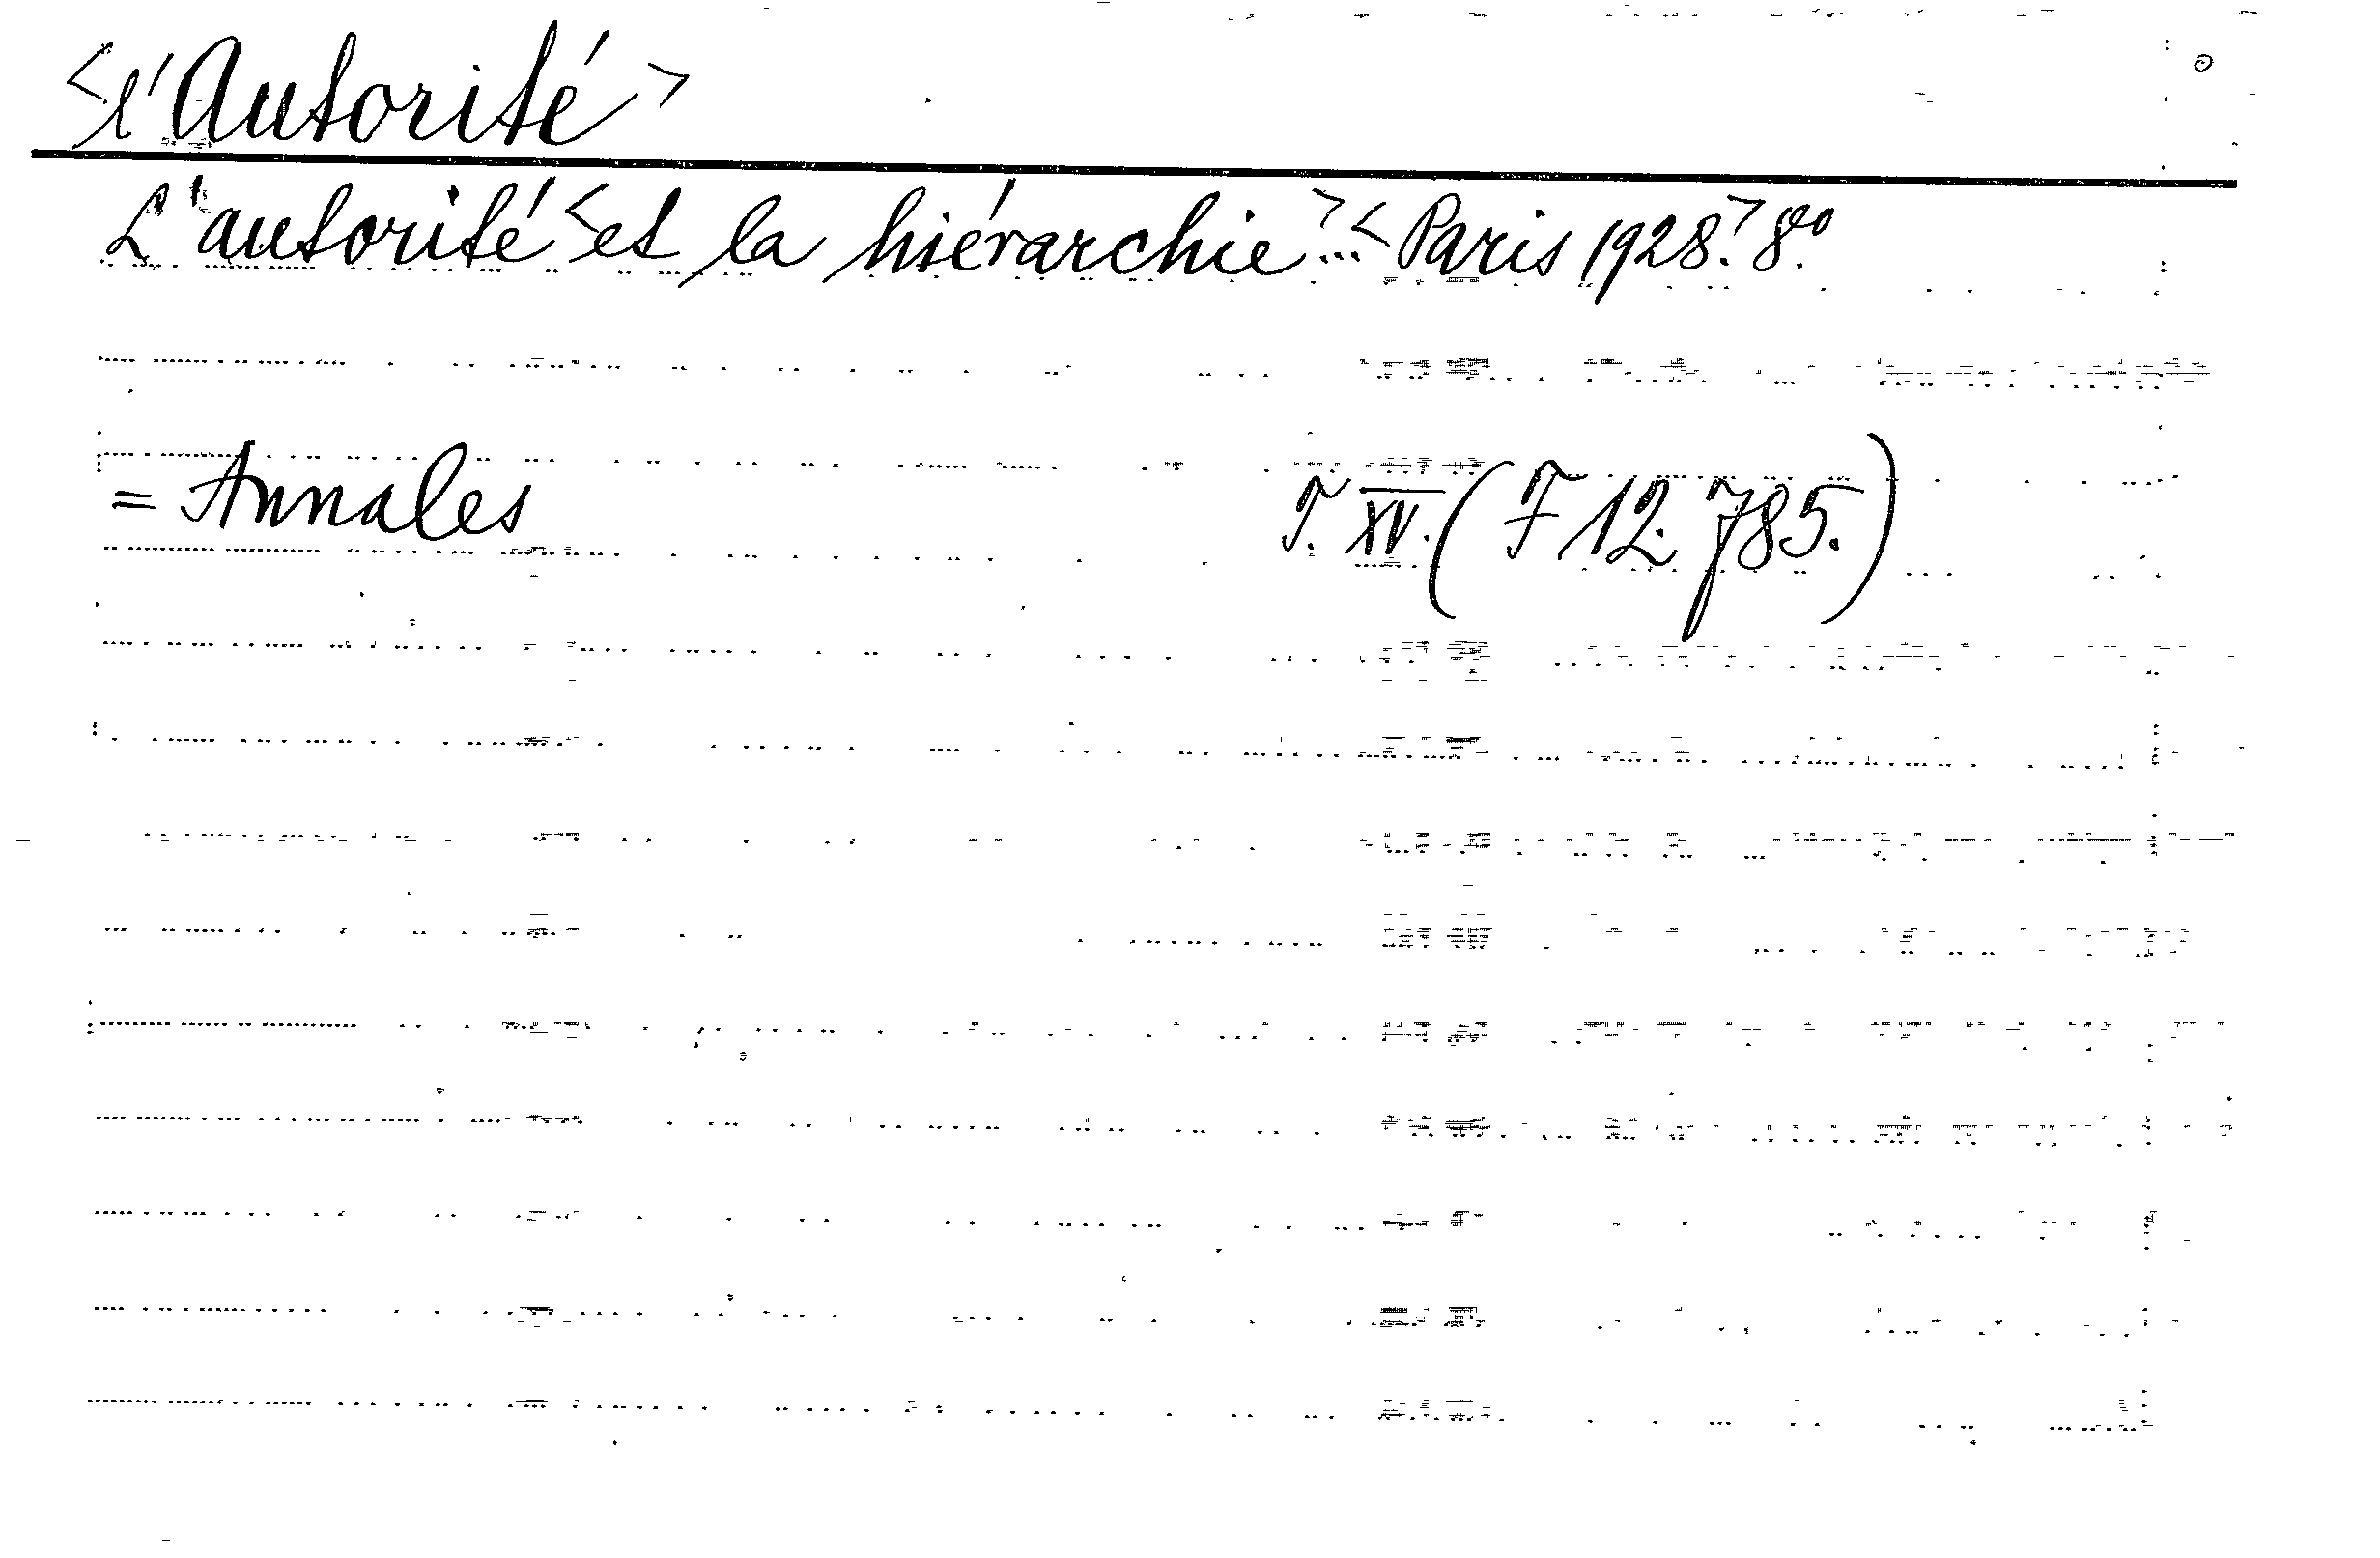 <l'Autorité>
L'autorité <et la hiérarchie>... <Paris 1928.> 8⁰.
= Annales T. XV. (F 12.785.)